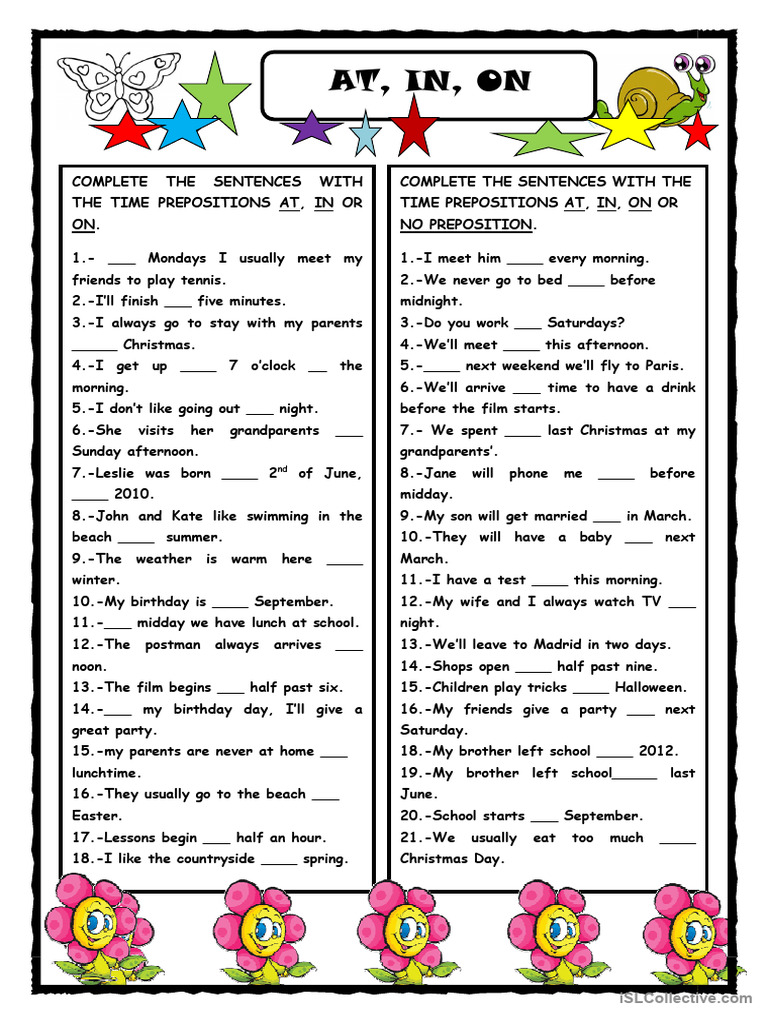 AT, IN, ON
COMPLETE THE SENTENCES WITH
THE TIME PREPOSITIONS AT, IN OR
ON.
1.- ___ Mondays I usually meet my
friends to play tennis.
2.-I'll finish ___ five minutes.
3.-I always go to stay with my parents
_____ Christmas.
4.-I get up ____ 7 o'clock __ the
morning.
5.-I don't like going out ___ night.
6.-She visits her grandparents ___
Sunday afternoon.
7.-Leslie was born ____ 2nd of June,
____ 2010.
8.-John and Kate like swimming in the
beach ____ summer.
9.-The weather is warm here ____
winter.
10.-My birthday is ____ September.
11.-___ midday we have lunch at school.
12.-The postman always arrives ___
noon.
13.-The film begins ___ half past six.
14.-___ my birthday day, I'll give a
great party.
15.-my parents are never at home ___
lunchtime.
16.-They usually go to the beach ___
Easter.
17.-Lessons begin ___ half an hour.
18.-I like the countryside ____ spring.
COMPLETE THE SENTENCES WITH THE
TIME PREPOSITIONS AT, IN, ON OR
NO PREPOSITION.
1.-I meet him ____ every morning.
2.-We never go to bed ____ before
midnight.
3.-Do you work ___ Saturdays?
4.-We'll meet ____ this afternoon.
5.-____ next weekend we'll fly to Paris.
6.-We'll arrive ___ time to have a drink
before the film starts.
7.- We spent ____ last Christmas at my
grandparents'.
8.-Jane will phone me ____ before
midday.
9.-My son will get married ___ in March.
10.-They will have a baby ___ next
March.
11.-I have a test ____ this morning.
12.-My wife and I always watch TV ___
night.
13.-We'll leave to Madrid in two days.
14.-Shops open ____ half past nine.
15.-Children play tricks ____ Halloween.
16.-My friends give a party ___ next
Saturday.
18.-My brother left school ____ 2012.
19.-My brother left school_____ last
June.
20.-School starts ___ September.
21.-We usually eat too much ____
Christmas Day.
iSLCollective.com